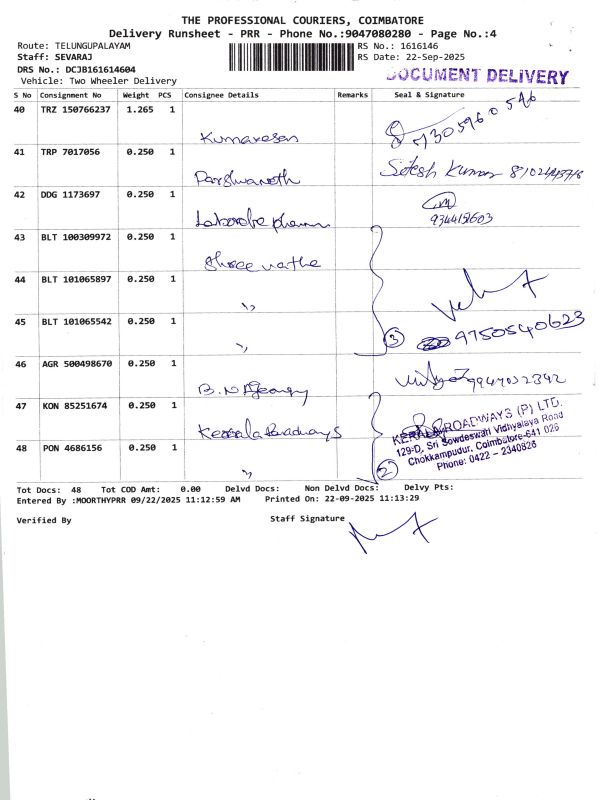 THE PROFESSIONAL COURIERS, COIMBATORE
Delivery Runsheet - PRR - Phone No.:9047080280 - Page No.:4
Route: TELUNGUPALAYAM
RS No.: 1616146
Staff: SEVARAJ
RS Date: 22-Sep-2025
DRS No.: DCJB161614604
DOCUMENT DELIVERY
Vehicle: Two Wheeler Delivery
S No Consignment No Weight PCS Consignee Details Remarks Seal & Signature
40 TRZ 150766237 1.265 1
Kumaresan
41 TRP 7017056 0.250 1
Parshwanath
Sitesh Kumar
42 DDG 1173697 0.250 1
43 BLT 100309972 0.250 1
Shree
44 BLT 101065897 0.250 1
"
45 BLT 101065542 0.250 1
"
3
9750540623
46 AGR 500498670 0.250 1
47 KON 85251674 0.250 1
Kerala Roadways
KERALA ROADWAYS (P) LTD.
129-D, Sri Sowdeswari Vidhyalaya Road
Chokkampudur, Coimbatore-641 026
Phone: 0422 - 2340826
48 PON 4686156 0.250 1
"
2
Tot Docs: 48 Tot COD Amt: 0.00 Delvd Docs: Non Delvd Docs: Delvy Pts:
Entered By :MOORTHYPRR 09/22/2025 11:12:59 AM Printed On: 22-09-2025 11:13:29
Verified By Staff Signature